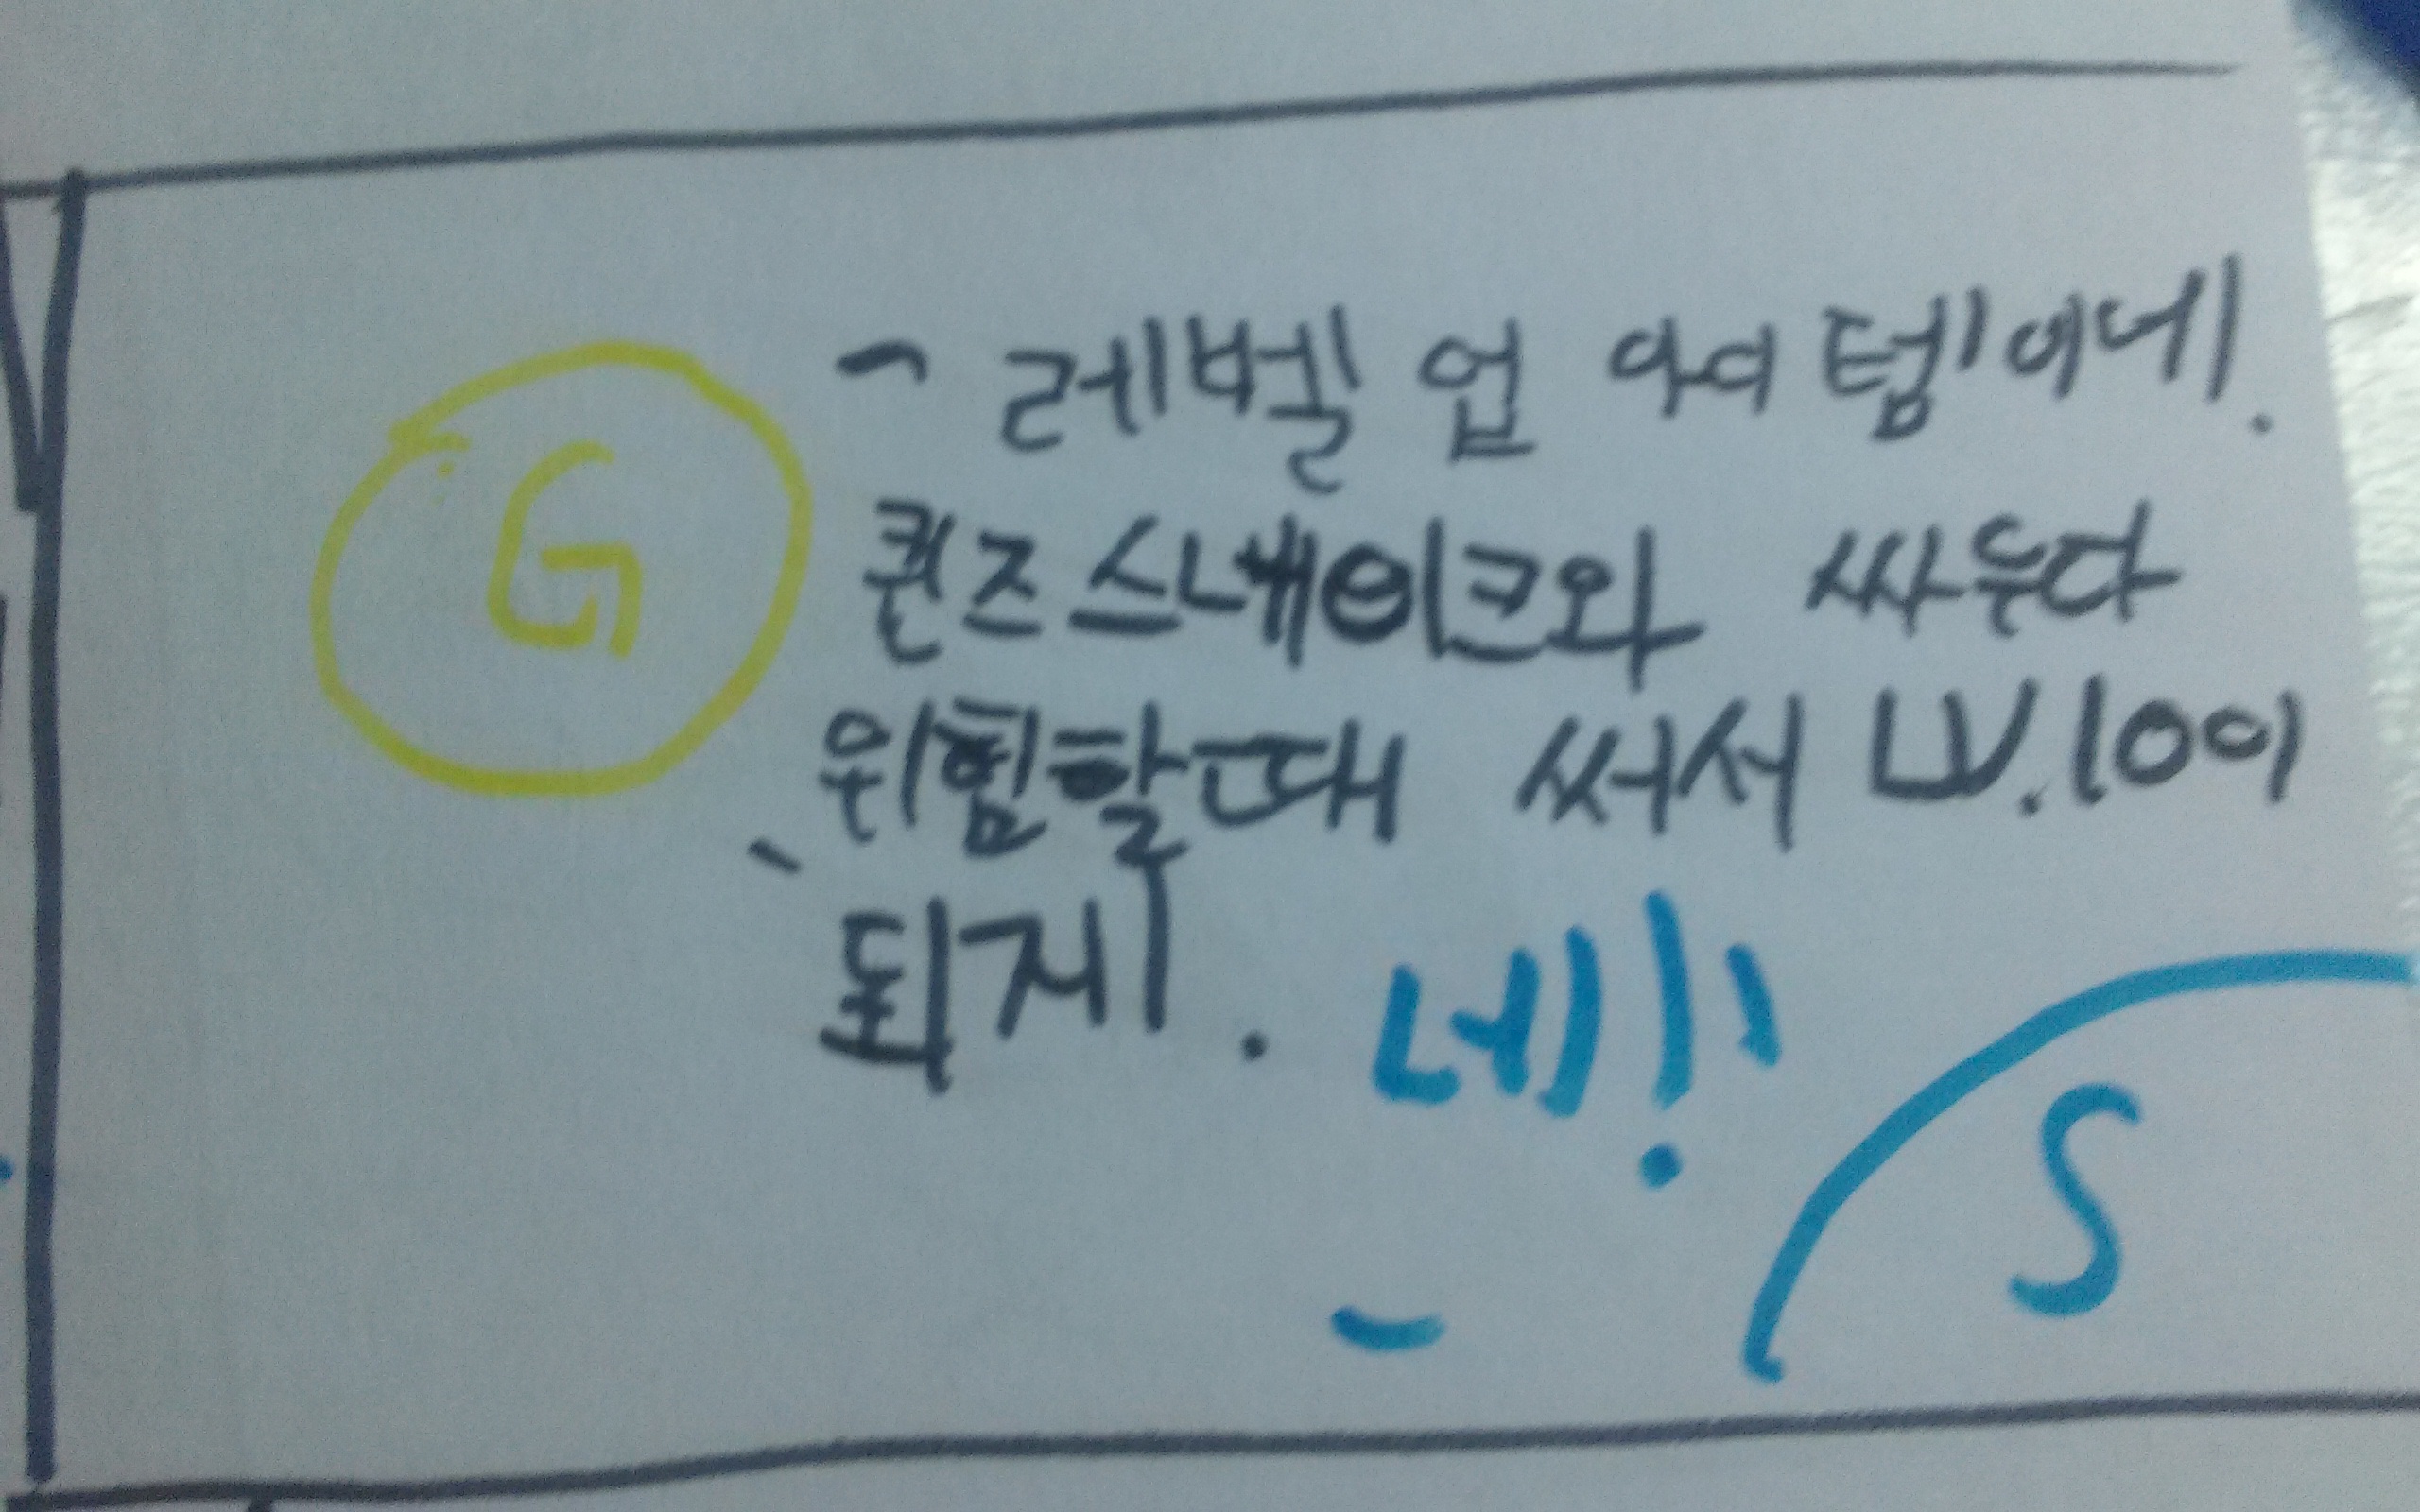 G
레벨 업 아이템이네.
퀸즈스네이크와 싸우다
위험할때 써서 LV.10이
되지. 네!
S